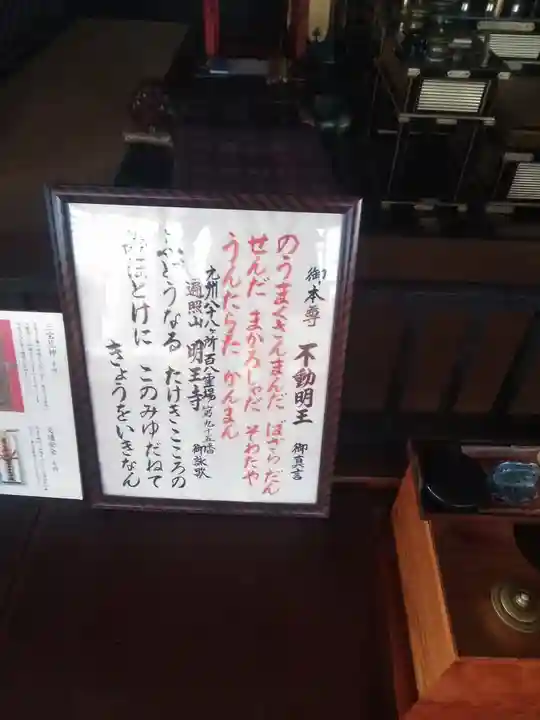 御本尊 不動明王 御真言
のうまくさんまんだ ばざらだん
せんだ まかろしゃだ そわたや
うんたらた かんまん
九州八十八ヶ所百八霊場 第九十五番
遍照山 明王寺 御詠歌
ふどうなる たけきこころの
みほとけに このみゆだねて
きょうをいきなん
三宝荒神